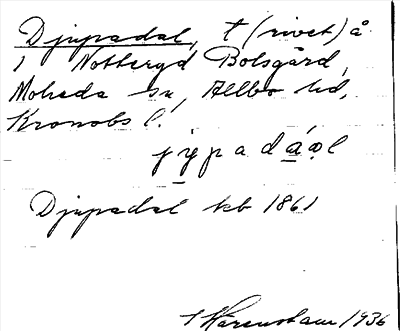 Djupadal, t (rivet) å
1 Notteryd Bolsgård,
Moheda sn, Allbo hd,
Kronobs l.
jypadál
Djupadal kb 1861
1936